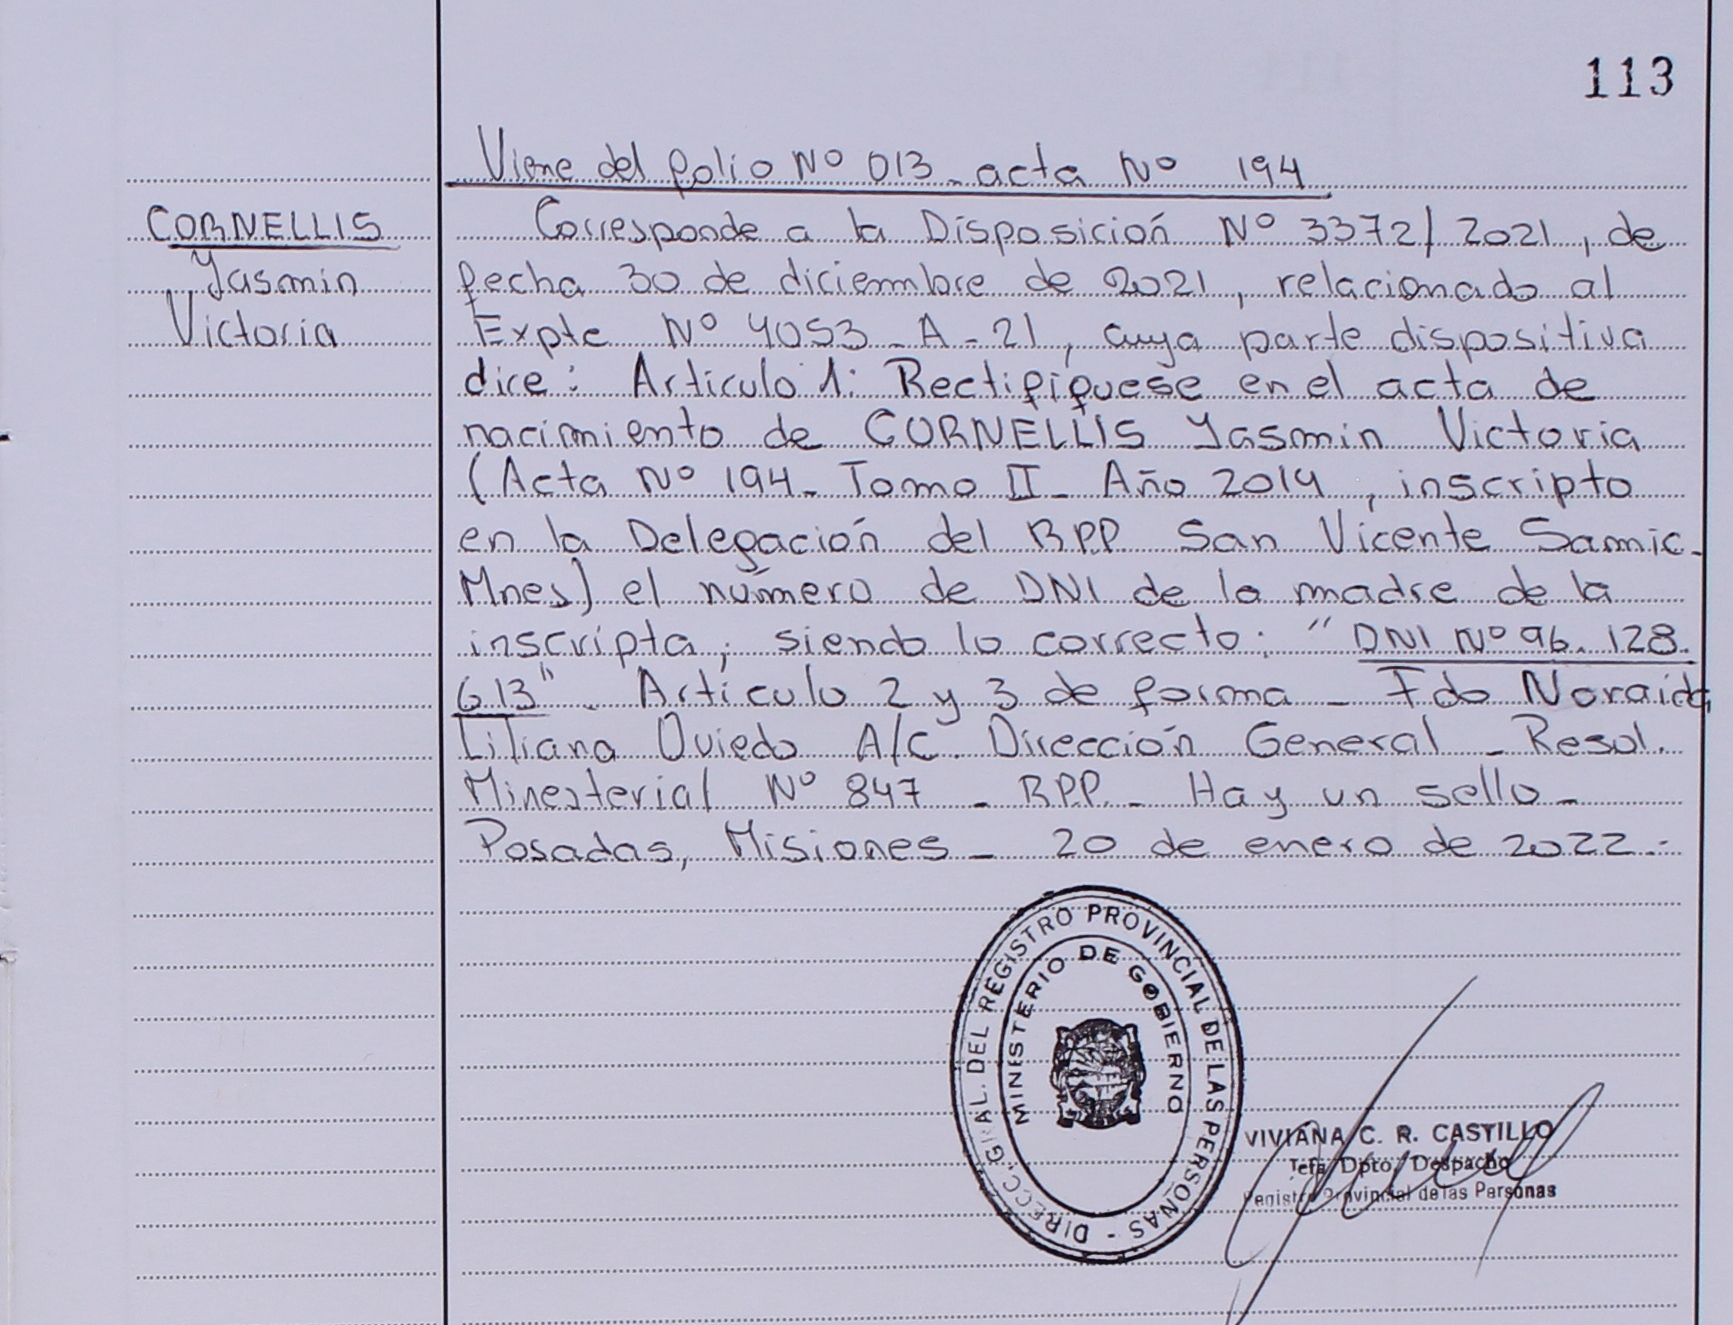 113
Viene del folio Nº 013 - acta Nº 194
CORNELLIS
Yasmin
Victoria
Corresponde a la Disposición Nº 3372/2021, de
fecha 30 de diciembre de 2021, relacionado al
Expte Nº 4053 - A - 21, cuya parte dispositiva
dice: Articulo 1: Rectifíquese en el acta de
nacimiento de CORNELLIS Yasmin Victoria
(Acta Nº 194 - Tomo II - Año 2014, inscripto
en la Delegación del RPP San Vicente Samic -
Mnes) el número de DNI de la madre de la
inscripta, siendo lo correcto: "DNI Nº 96.128.
613" - Artículo 2 y 3 de forma - Fdo Noraida
Liliana Oviedo A/C Dirección General - Resol.
Minesterial Nº 847 - RPP - Hay un sello -
Posadas, Misiones - 20 de enero de 2022.-
DIRECC. GRAL. DEL REGISTRO PROVINCIAL DE LAS PERSONAS -
MINISTERIO DE GOBIERNO
VIVIANA C. R. CASTILLO
Jefa Dpto. Despacho
Registro Provincial de las Personas